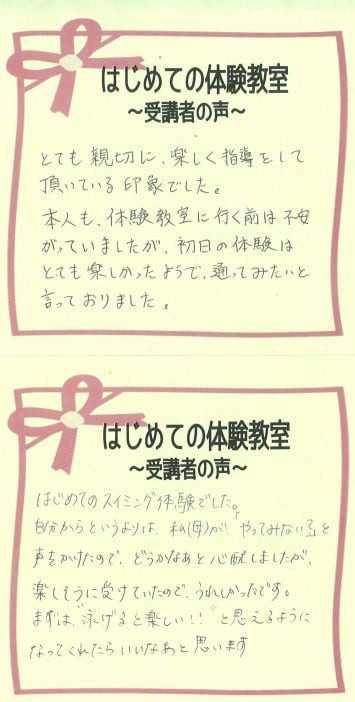 はじめての体験教室
~受講者の声~
とても親切に、楽しく指導をして
頂いている印象でした。
本人も、体験教室に行く前は不安
がっていましたが、初日の体験は
とても楽しかったようで、通ってみたいと
言っておりました。
はじめての体験教室
~受講者の声~
はじめてのスイミング体験でした。
自分からというよりは、私(母)が、「やってみない?」と
声をかけたので、どうかなあと心配しましたが、
楽しそうに受けていたので、うれしかったです。
まずは、"泳げると楽しい!!"と思えるように
なってくれたらいいなあと思います